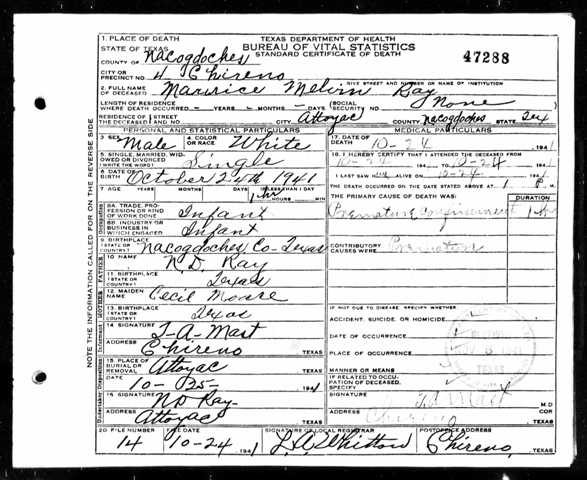 1. PLACE OF DEATH
TEXAS DEPARTMENT OF HEALTH
BUREAU OF VITAL STATISTICS
STANDARD CERTIFICATE OF DEATH
47288
STATE OF TEXAS
COUNTY OF Nacogdoches
CITY OR PRECINCT NO. 4 Chireno
GIVE STREET AND NUMBER OR NAME OF INSTITUTION
2. FULL NAME OF DECEASED Maurice Melvin Ray
LENGTH OF RESIDENCE WHERE DEATH OCCURRED – YEARS – MONTHS – DAYS
SOCIAL SECURITY NO. None
RESIDENCE OF THE DECEASED STREET AND NO. CITY Attoyac COUNTY Nacogdoches STATE Tex
PERSONAL AND STATISTICAL PARTICULARS
3. SEX Male
4. COLOR OR RACE White
5. SINGLE, MARRIED, WIDOWED OR DIVORCED (WRITE THE WORD) Single
6. DATE OF BIRTH October 24th 1941
7. AGE YEARS MONTHS DAYS IF LESS THAN 1 DAY
1 hr HOURS MIN
8A. TRADE, PROFESSION OR KIND OF WORK DONE Infant
8B. INDUSTRY OR BUSINESS IN WHICH ENGAGED Infant
9. BIRTHPLACE (STATE OR COUNTRY) Nacogdoches Co-Texas
FATHER
10. NAME N. D. Ray
11. BIRTHPLACE (STATE OR COUNTRY) Texas
MOTHER
12. MAIDEN NAME Cecil Moore
13. BIRTHPLACE (STATE OR COUNTRY) Texas
14. SIGNATURE T-A-Mast
ADDRESS Chireno TEXAS
15. PLACE OF BURIAL OR REMOVAL Attoyac TEXAS
DATE 10-25- 1941
16. SIGNATURE ND Ray
ADDRESS Attoyac TEXAS
MEDICAL PARTICULARS
17. DATE OF DEATH 10-24 , 1941
18. I HEREBY CERTIFY THAT I ATTENDED THE DECEASED FROM
10-24 1941 TO 10-24 1941
I LAST SAW ALIVE ON 10-24 1941
THE DEATH OCCURRED ON THE DATE STATED ABOVE AT 1 P. M.
THE PRIMARY CAUSE OF DEATH WAS: DURATION
Premature Confinement 1 hr
CONTRIBUTORY CAUSES WERE:
IF NOT DUE TO DISEASE, SPECIFY WHETHER:
ACCIDENT, SUICIDE, OR HOMICIDE
DATE OF OCCURRENCE
PLACE OF OCCURRENCE
MANNER OR MEANS
IF RELATED TO OCCUPATION OF DECEASED, SPECIFY
SIGNATURE TA Mast M.D.
ADDRESS Chireno TEXAS
20. FILE NUMBER 14
FILE DATE 10-24 1941
SIGNATURE OF LOCAL REGISTRAR L.A. Whitton
POSTOFFICE ADDRESS Chireno, TEXAS
NOTE THE INFORMATION CALLED FOR ON THE REVERSE SIDE